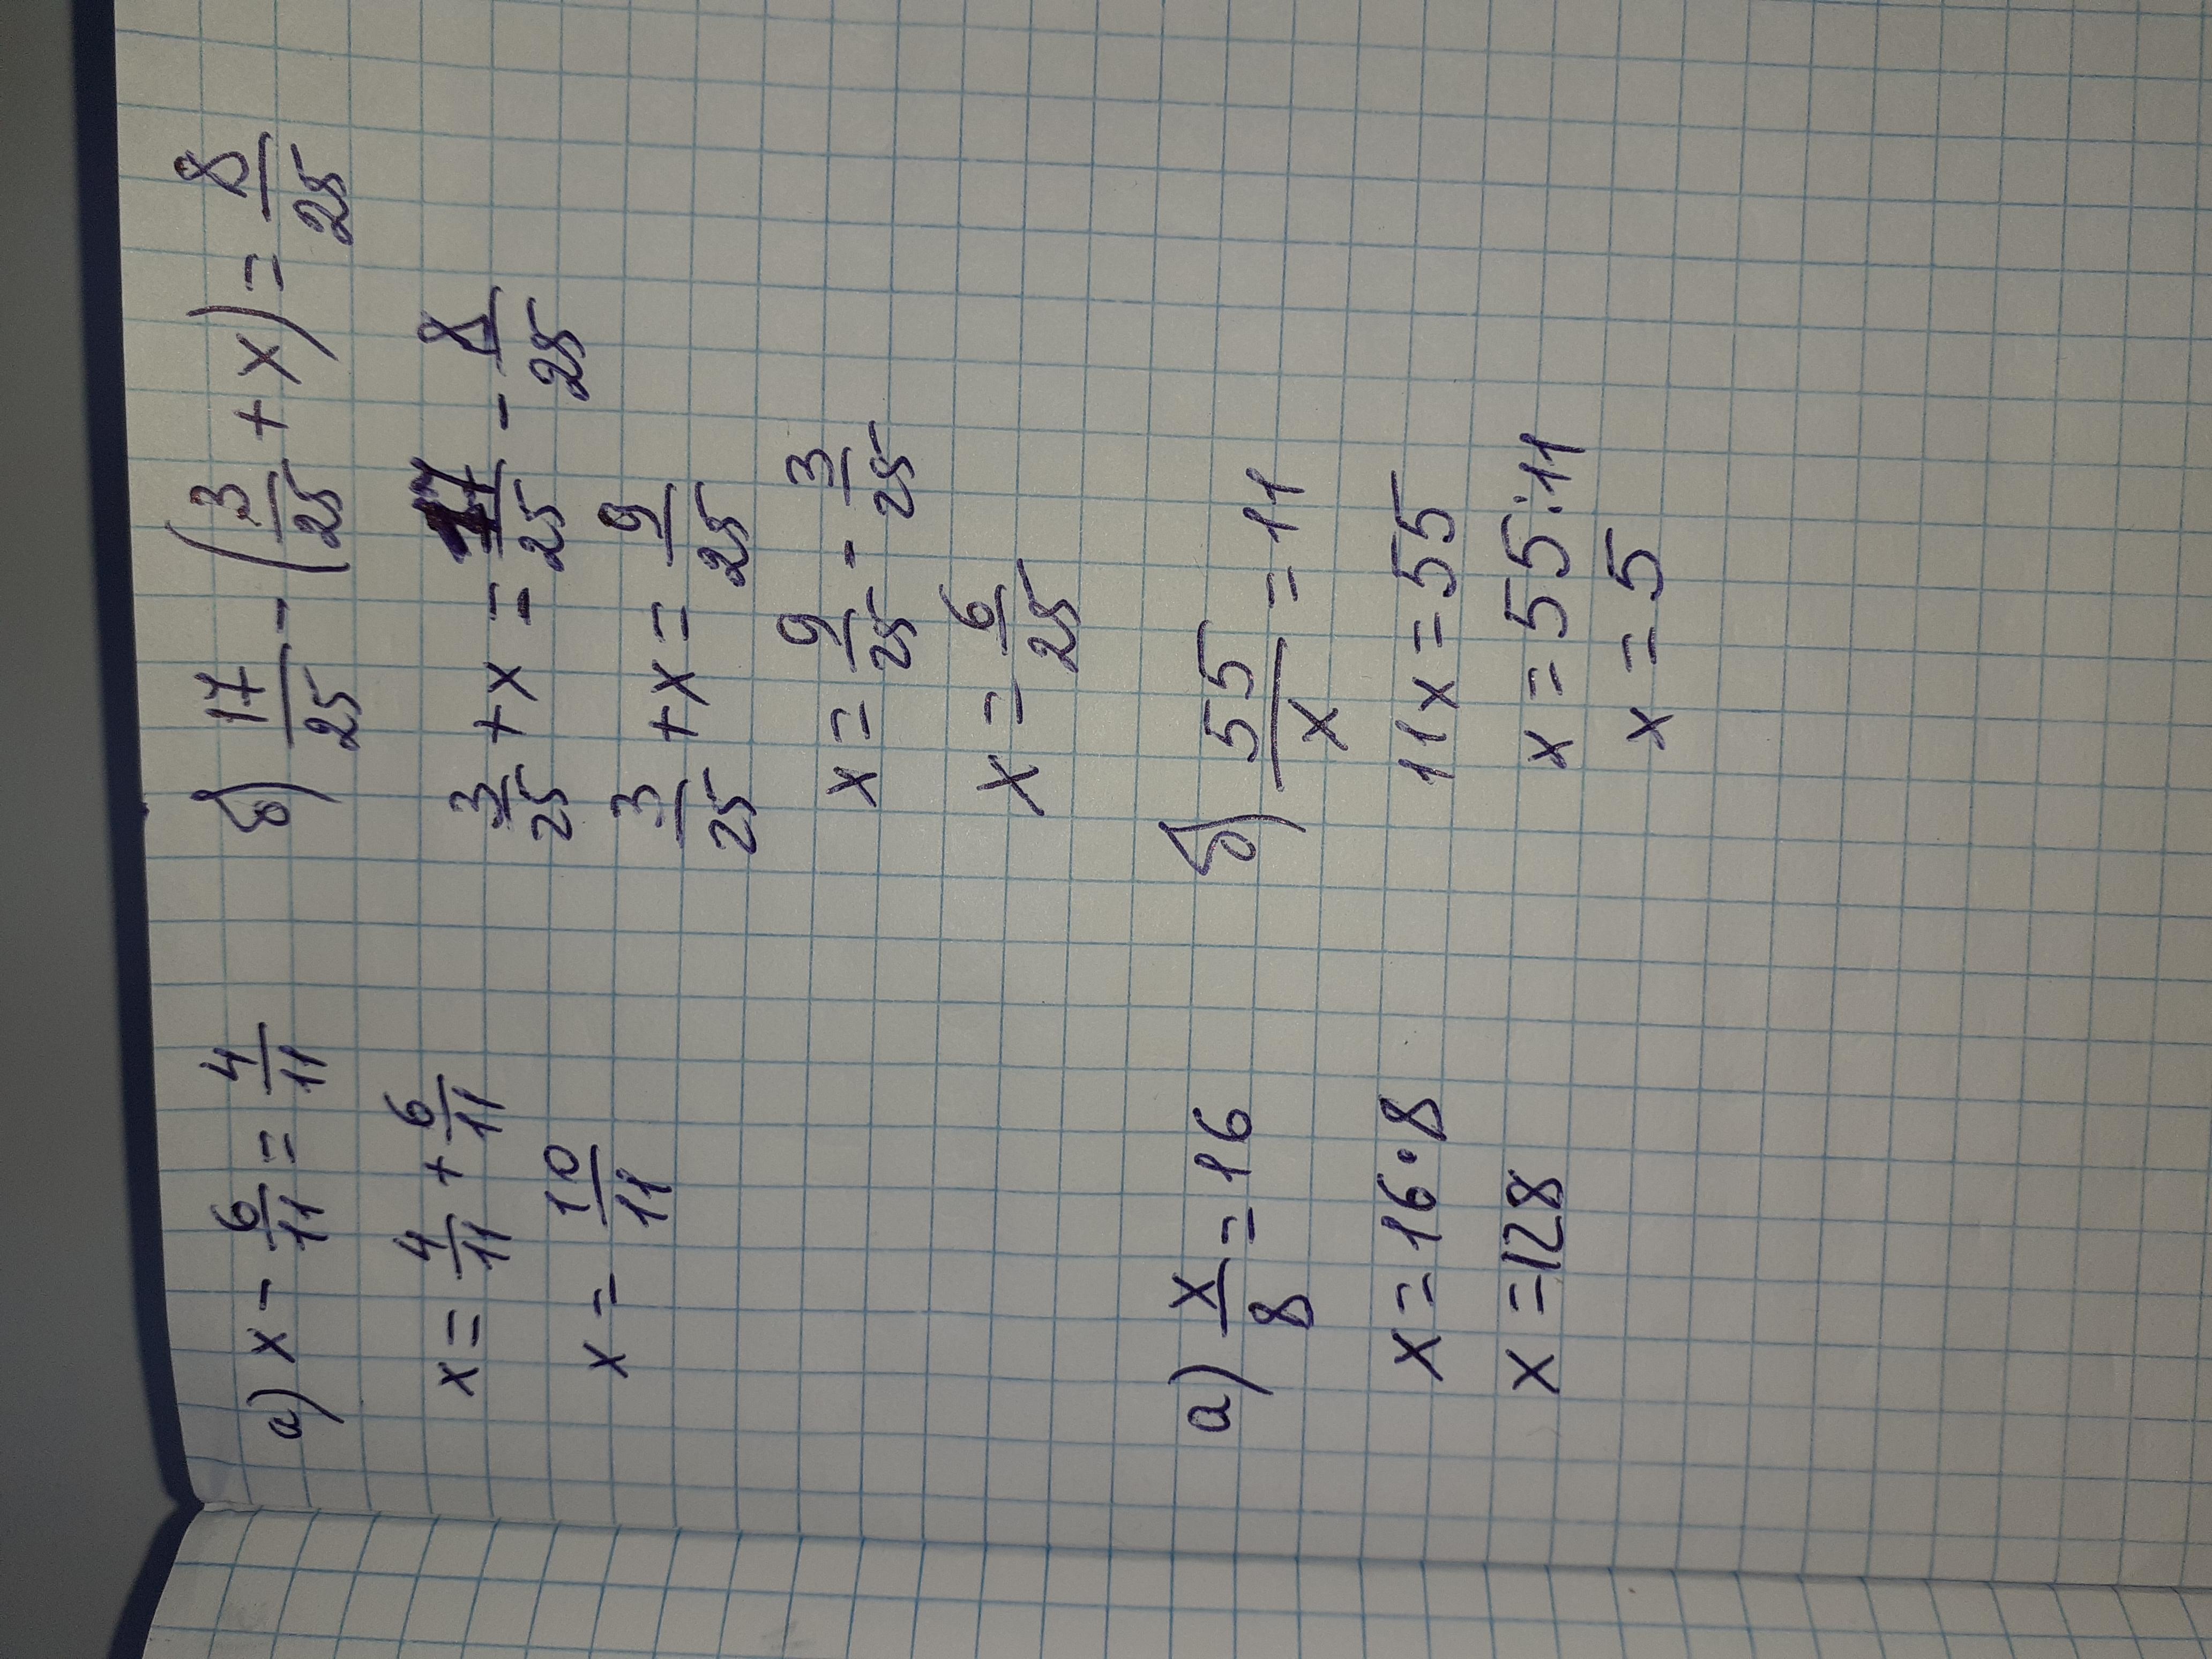 а) x - 6/11 = 4/11
x = 4/11 + 6/11
x = 10/11
б) 17/25 - (3/25 + x) = 8/25
3/25 + x = 17/25 - 8/25
3/25 + x = 9/25
x = 9/25 - 3/25
x = 6/25
а) x/8 = 16
x = 16 · 8
x = 128
б) 55/x = 11
11x = 55
x = 55 : 11
x = 5